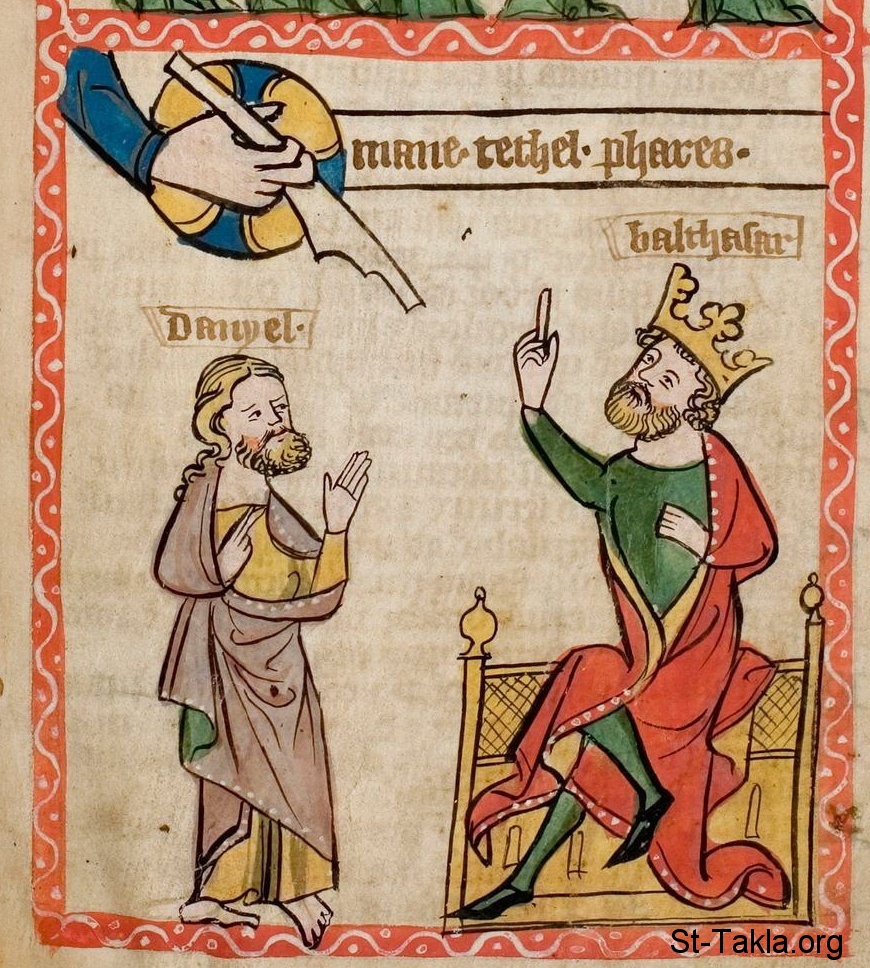 mane· techel· phares·
balthasar
Danyel·
St-Takla.org